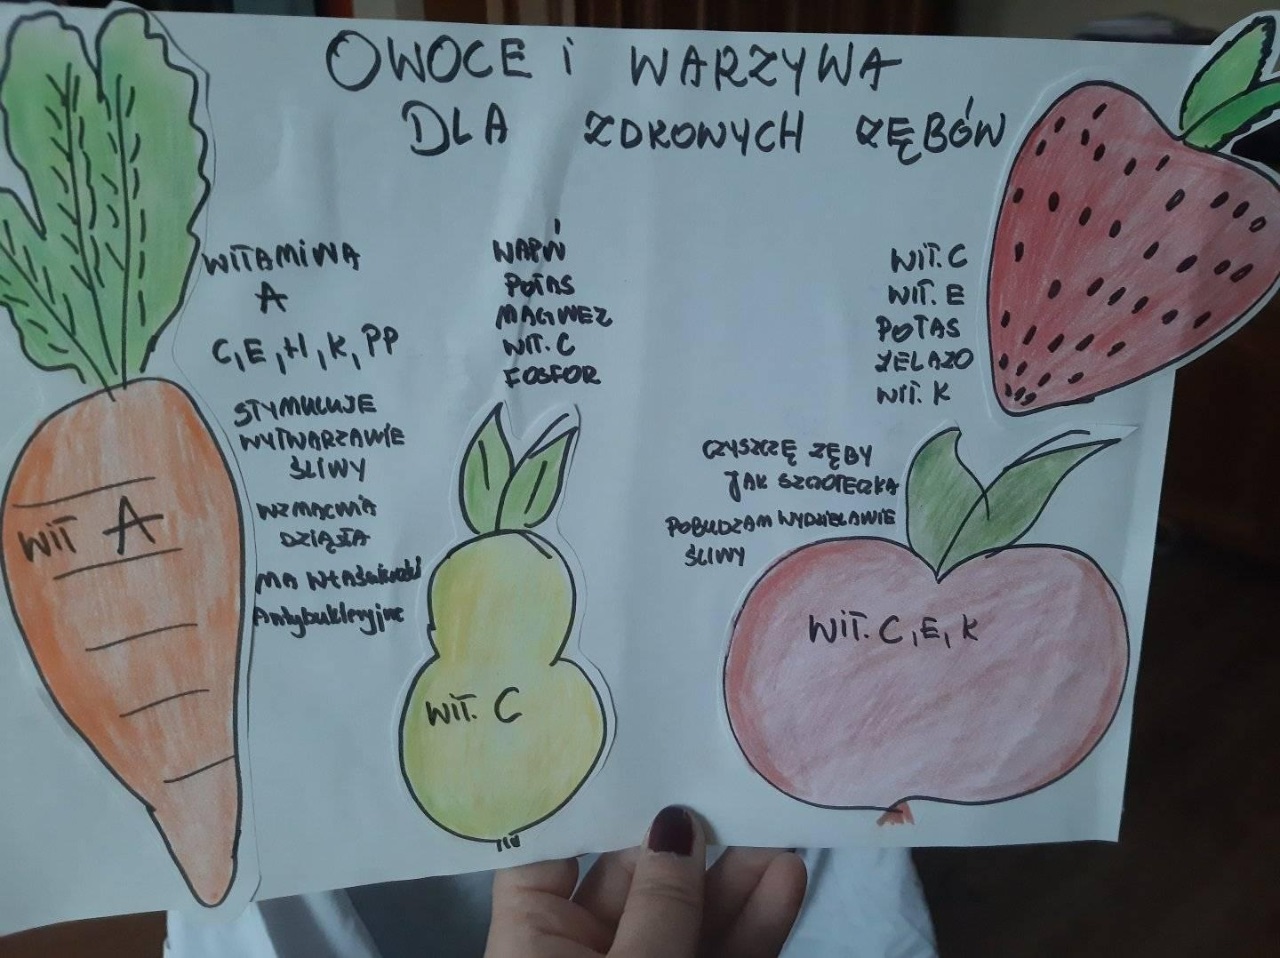 OWOCE i WARZYWA
DLA ZDROWYCH ZĘBÓW
WiTAMiNA
A
C, E, H, K, PP
STYMULUJE
WYTWARZANIE
ŚLINY
WZMACNIA
DZIĄSŁA
MA WŁAŚCIWOŚCI
Antybakteryjne
WiT A
WAPŃ
POTAS
MAGNEZ
WiT. C
FOSFOR
WiT. C
WiT. C
WiT. E
POTAS
ŻELAZO
WiT. K
CZYSZCZĘ ZĘBY
JAK SZCZOTECZKA
POBUDZAM WYDZIELANIE
ŚLINY
WiT. C, E, K